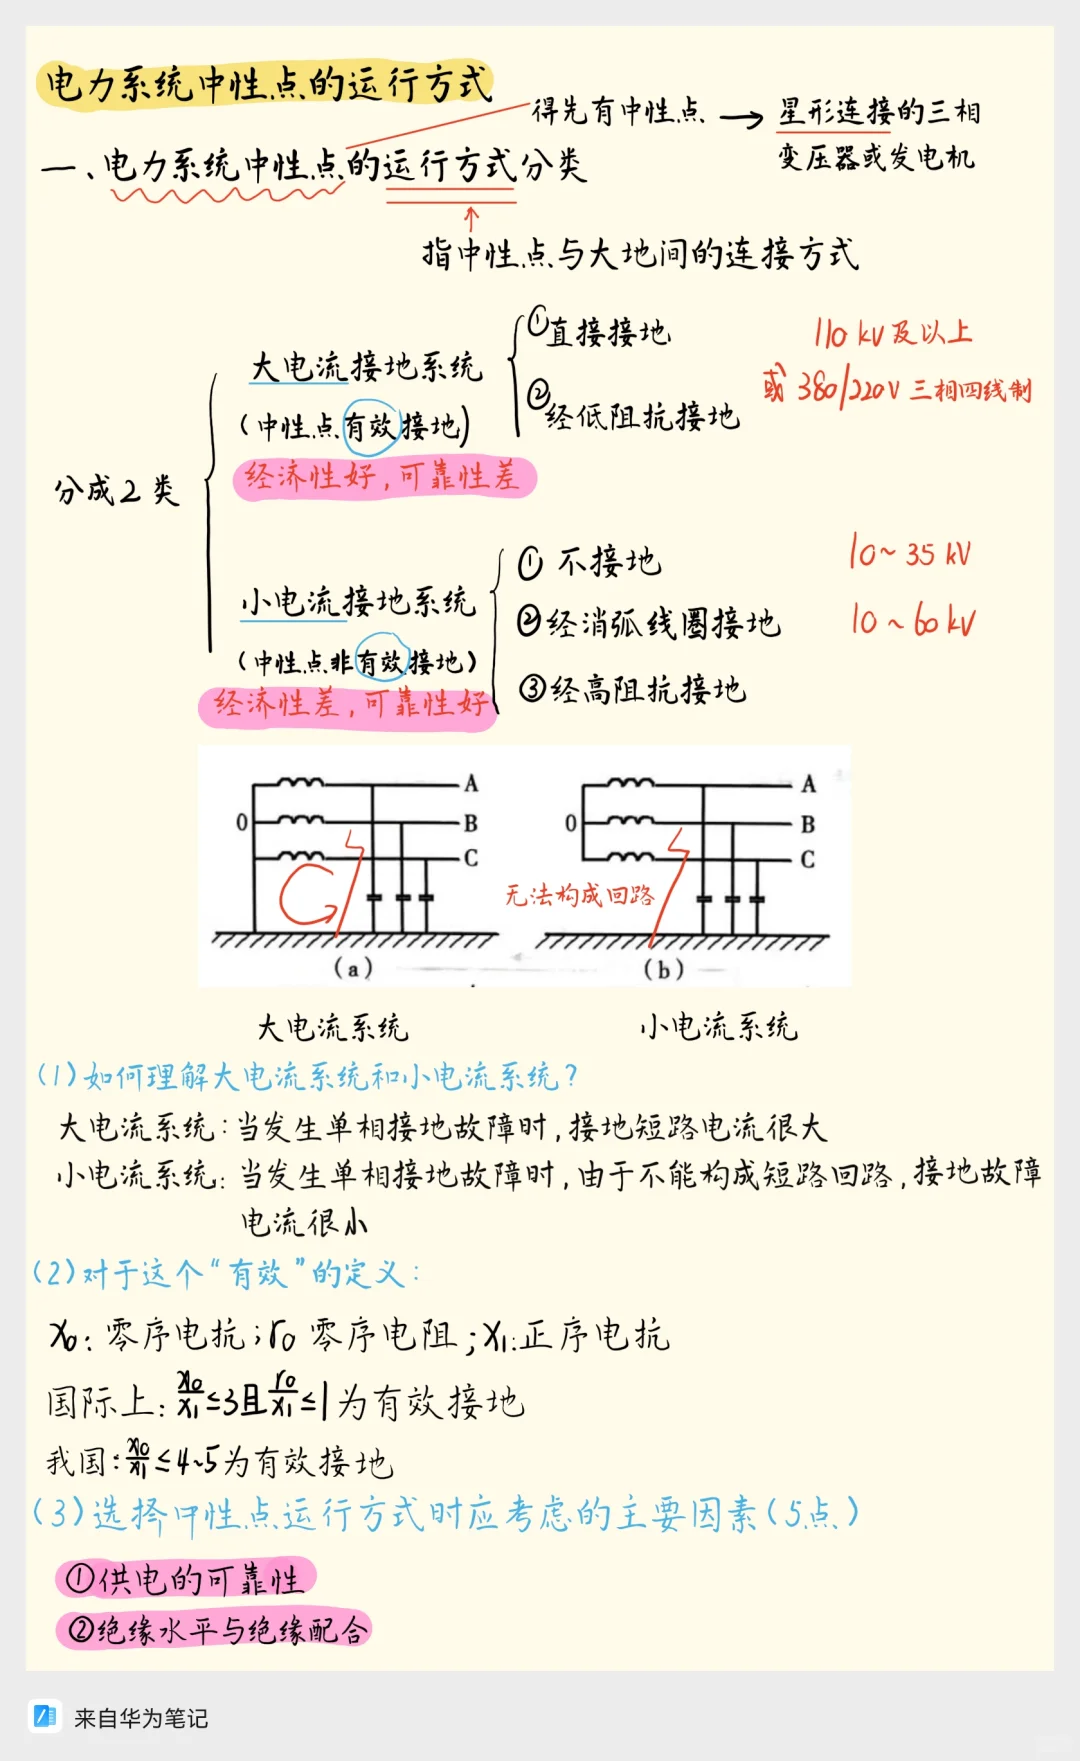 电力系统中性点的运行方式
得先有中性点 → 星形连接的三相
变压器或发电机
一、电力系统中性点的运行方式分类
指中性点与大地间的连接方式
分成2类
大电流接地系统
(中性点有效接地)
经济性好,可靠性差
①直接接地
②经低阻抗接地
110 kV及以上
或 380/220V 三相四线制
小电流接地系统
(中性点非有效接地)
经济性差,可靠性好
① 不接地
②经消弧线圈接地
③经高阻抗接地
10~35 kV
10~60 kV
A
0 B
C
(a)
A
0 B
C
无法构成回路
(b)
大电流系统
小电流系统
(1)如何理解大电流系统和小电流系统?
大电流系统:当发生单相接地故障时,接地短路电流很大
小电流系统:当发生单相接地故障时,由于不能构成短路回路,接地故障
电流很小
(2)对于这个“有效”的定义:
X0:零序电抗;r0 零序电阻;X1:正序电抗
国际上:X0/X1≤3且r0/X1≤1为有效接地
我国:X0/X1≤4~5为有效接地
(3)选择中性点运行方式时应考虑的主要因素(5点)
①供电的可靠性
②绝缘水平与绝缘配合
来自华为笔记